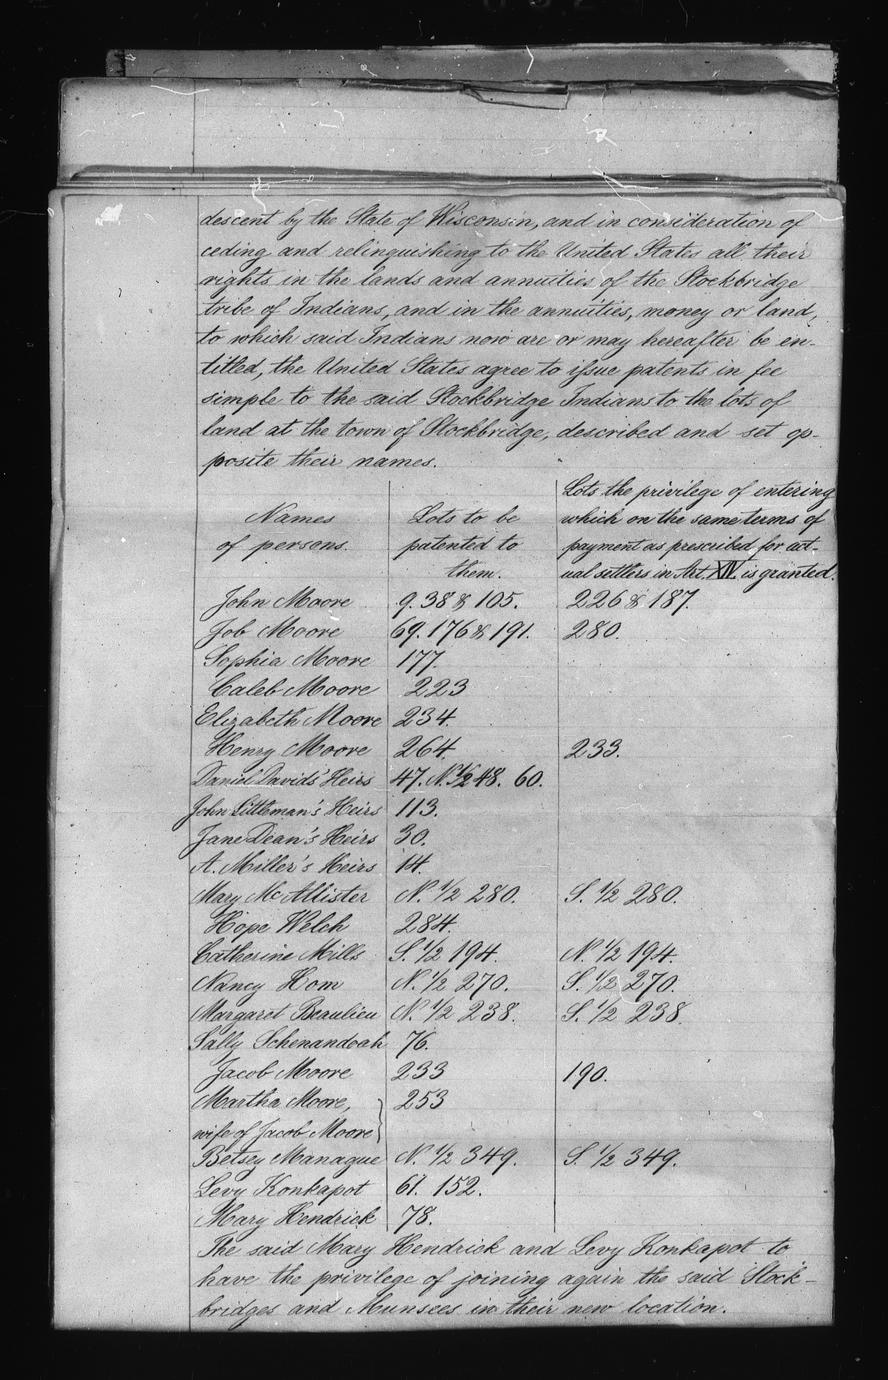 descent by the State of Wisconsin, and in consideration of
ceding and relinquishing to the United States all their
rights in the lands and annuities of the Stockbridge
tribe of Indians, and in the annuities, money or land,
to which said Indians now are or may hereafter be en-
titled, the United States agree to issue patents in fee
simple to the said Stockbridge Indians to the lots of
land at the town of Stockbridge, described and set op-
posite their names.
Names of persons. | Lots to be patented to them. | Lots the privilege of entering which on the same terms of payment as prescribed for act-ual settlers in Art. XIV is granted.
John Moore | 9. 38 & 105. | 226 & 187.
Job Moore | 69. 176 & 191. | 280.
Sophia Moore | 177.
Caleb Moore | 223
Elizabeth Moore | 234.
Henry Moore | 264. | 233.
Daniel Davids' Heirs | 47. N. 1/2 48. 60.
John Littleman's Heirs | 113.
Jane Dean's Heirs | 30.
A. Miller's Heirs | 14.
Mary McAllister | N. 1/2 280. | S. 1/2 280.
Hope Welch | 284.
Catherine Mills | S. 1/2 194. | N. 1/2 194.
Nancy Hom | N. 1/2 270. | S. 1/2 270.
Margaret Beaulieu | N. 1/2 238. | S. 1/2 238.
Sally Schenandoah | 76.
Jacob Moore | 233 | 190.
Martha Moore, | 253
wife of Jacob Moore
Betsey Manague | N. 1/2 349. | S. 1/2 349.
Levy Konkapot | 61. 152.
Mary Hendrick | 78.
The said Mary Hendrick and Levy Konkapot to
have the privilege of joining again the said Stock-
bridges and Munsees in their new location.